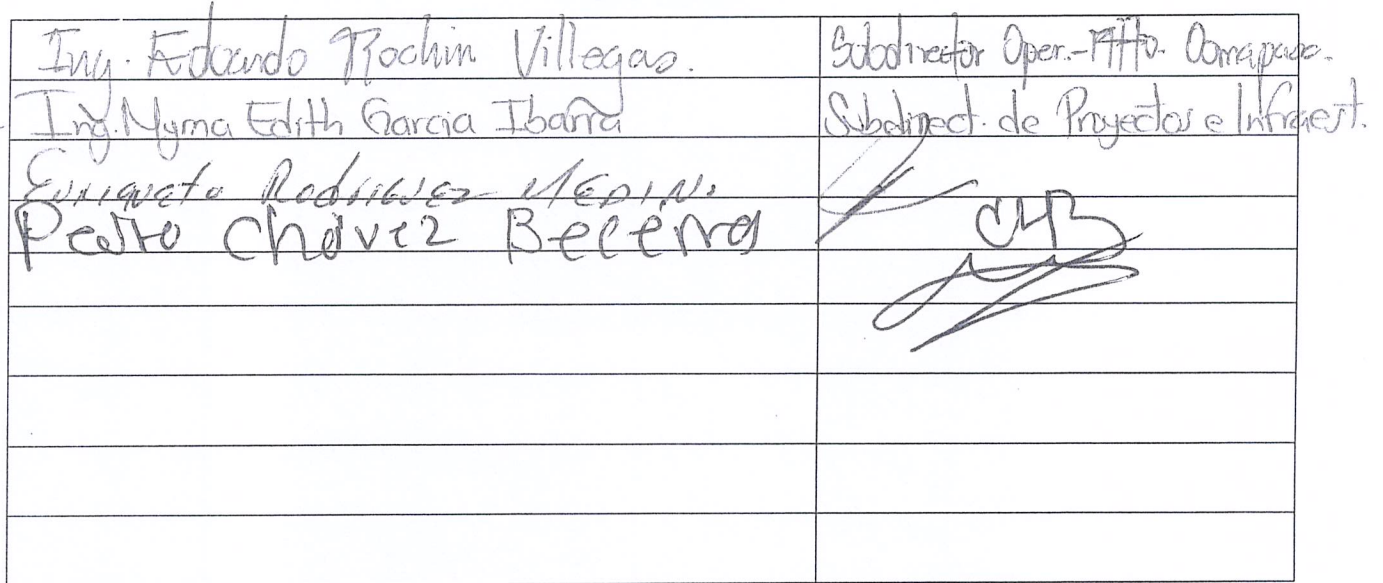 Ing. Edoardo Rochin Villegas. Subdirector Oper.-Mtto. Oomapasc.
Ing. Myrna Edith Garcia Ibarra Subdirect. de Proyectos e Infraest.
Enriqueta Rodriguez MEDINA
Pedro Chávez Becerra CHB